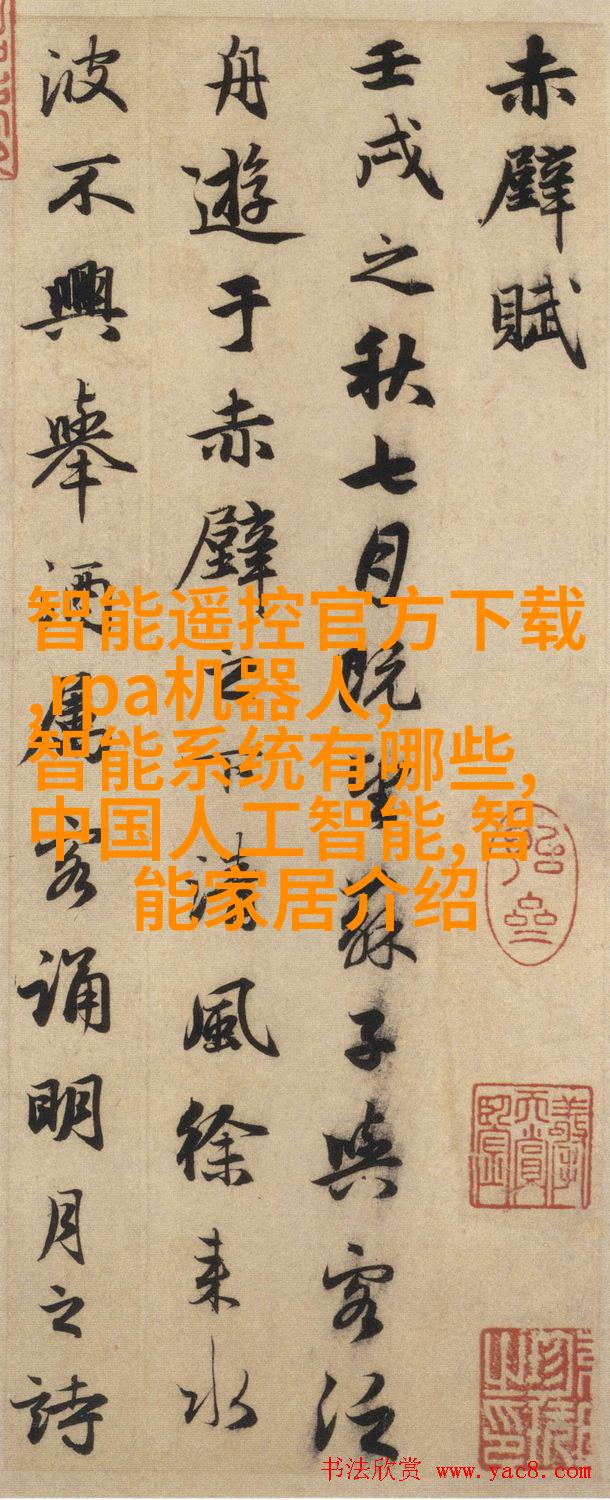 赤壁賦
壬戌之秋七月既望蘇子與客泛
舟遊于赤壁之下清風徐来水
波不興舉酒屬客誦明月之詩
智能遥控官方下载
,rpa机器人,
智能系统有哪些,
中国人工智能,智
能家居介绍
书法欣赏 www.yac8.com